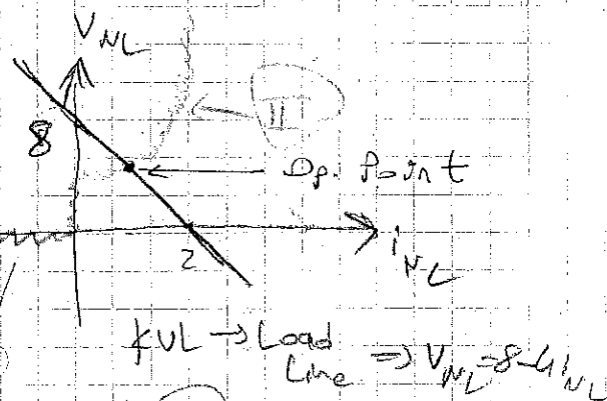 V_NL
II
8
Op. Point
2
i_NL
KVL → Load Line ⇒ V_NL = 8 - 4i_NL